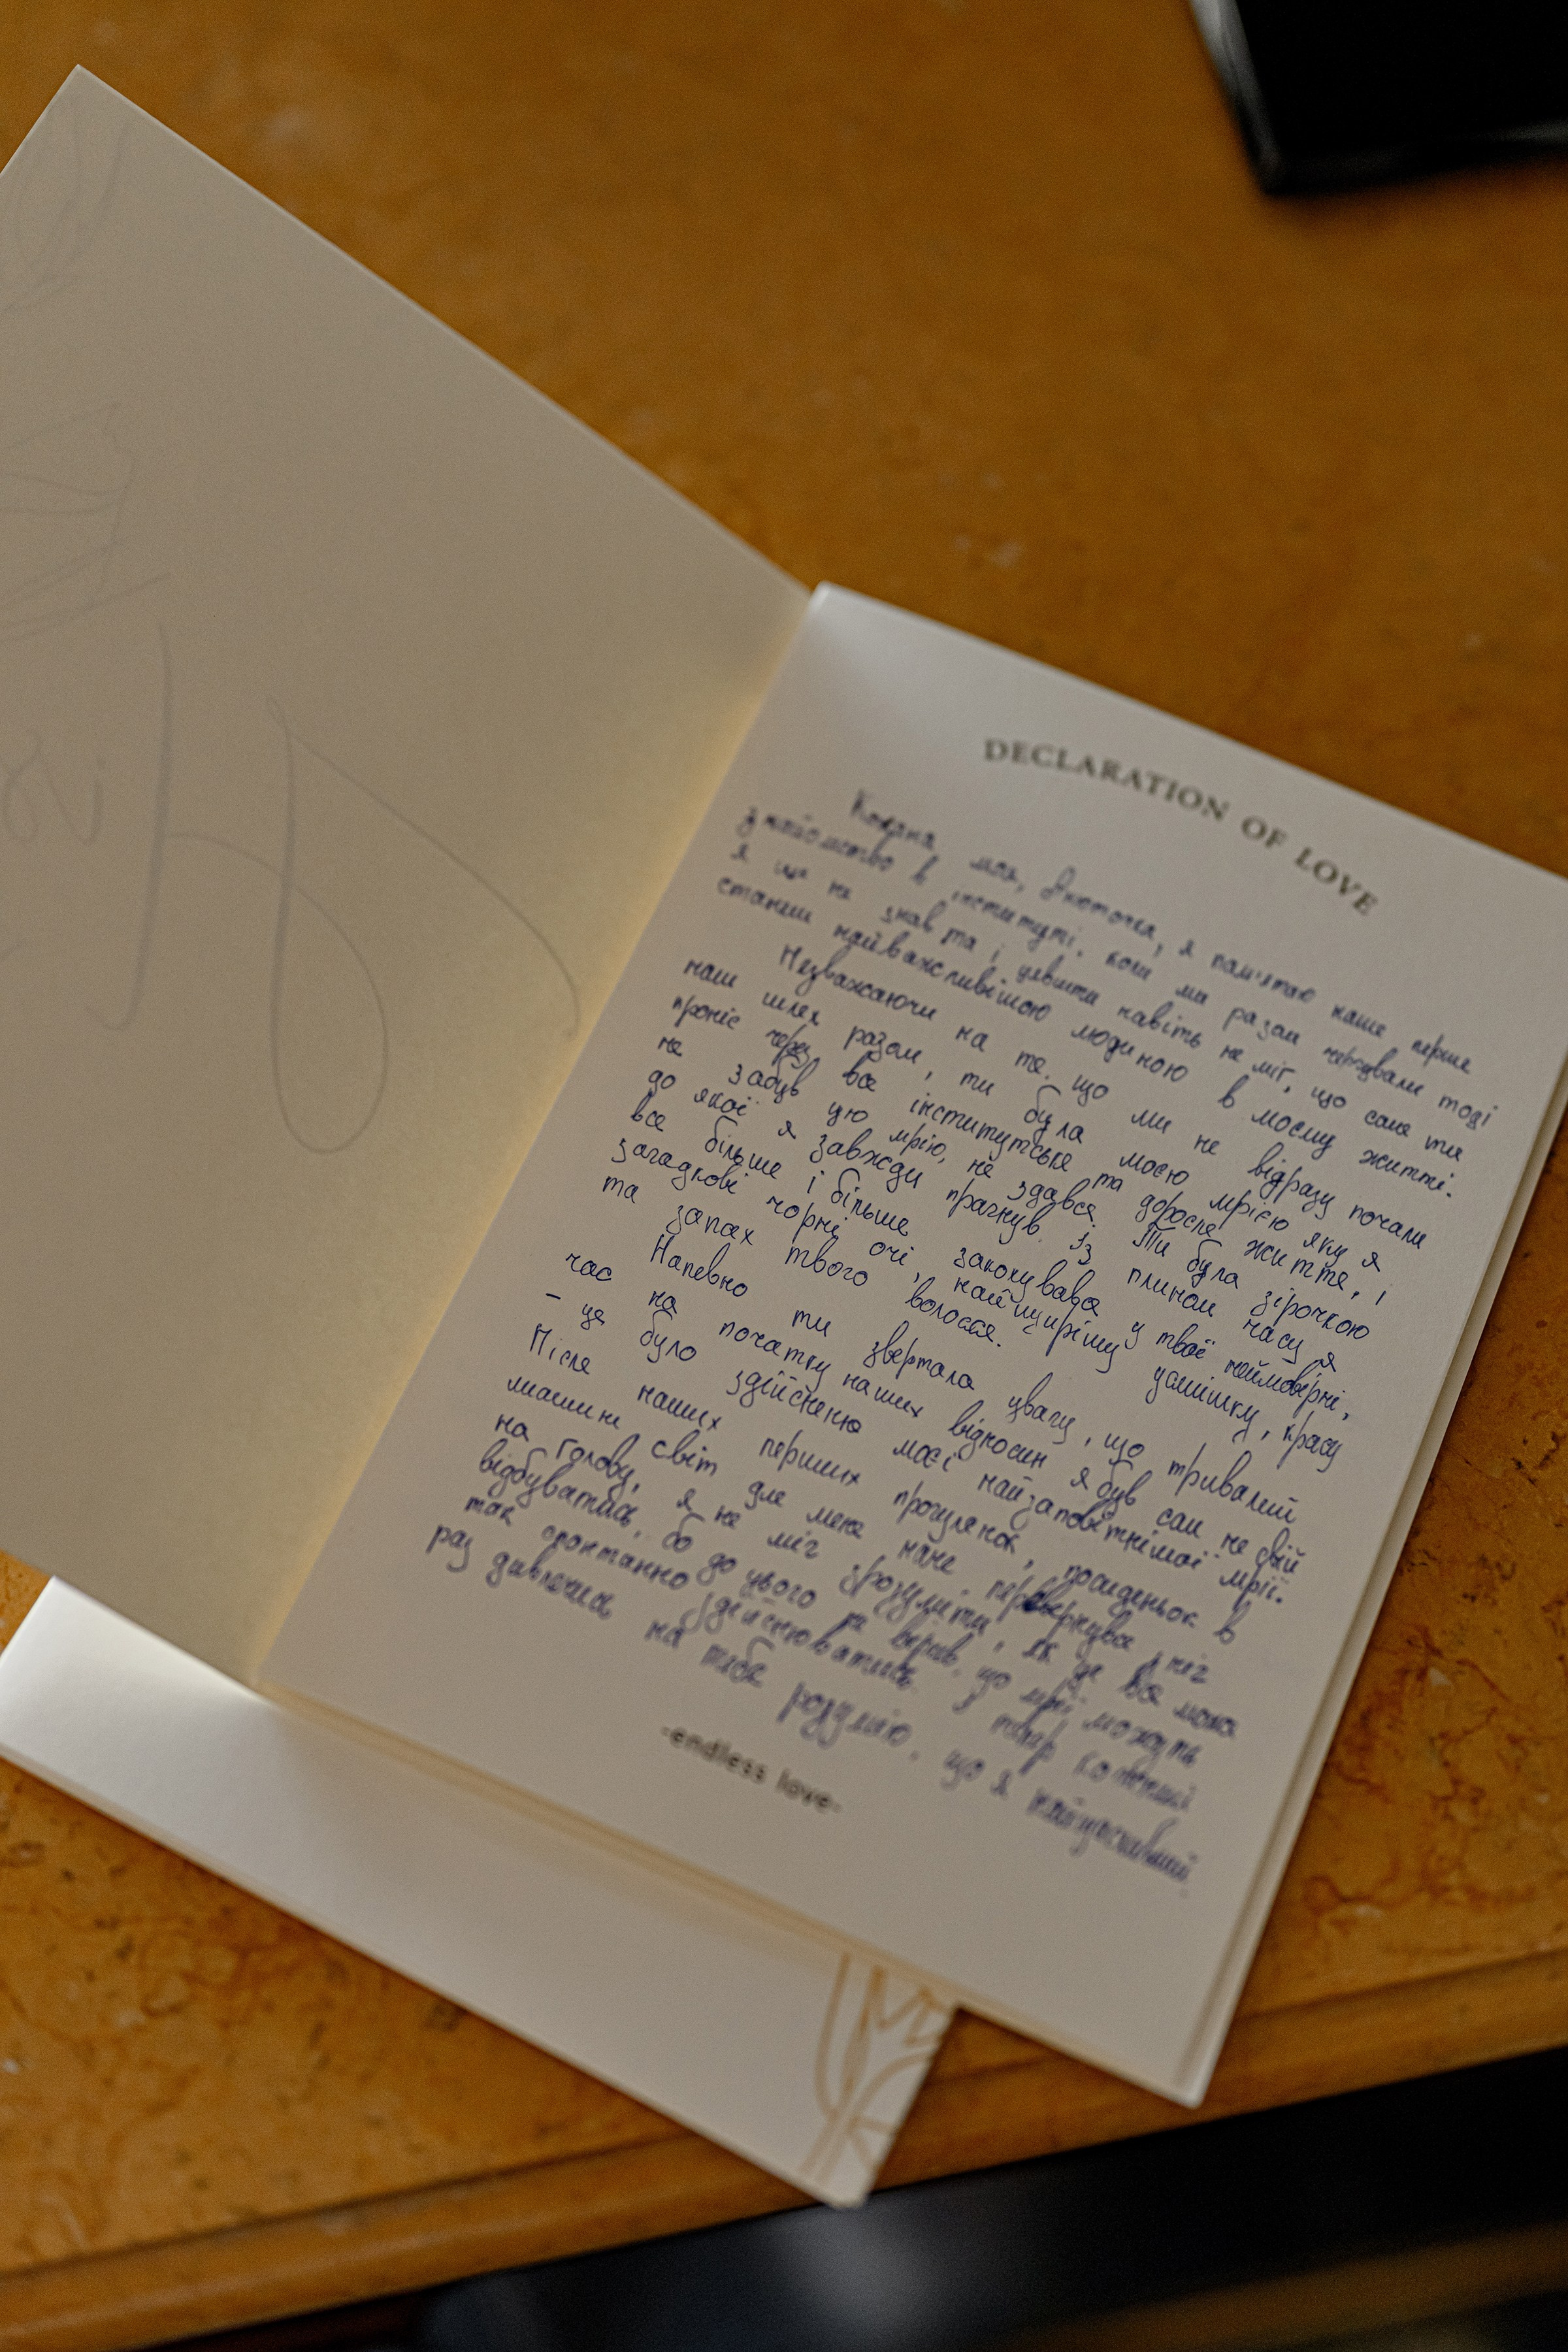 DECLARATION OF LOVE
Кохана моя, я пам'ятаю наше перше
знайомство в інституті, коли ми разом чергували тоді
я ще не знав та і уявити навіть не міг, що саме ти
станеш найважливішою людиною в моєму житті.
Незважаючи на те що ми не відразу почали
наш шлях разом, ти була моєю мрією яку я
проніс через все інститутське та доросле життя, і
не забув цю мрію, не здався. Ти була зірочкою
до якої я завжди прагнув. Із плином часу я
все більше і більше закохувався у твої неймовірні,
загадкові чорні очі, найщирішу усмішку, красу
та запах твого волосся.
Напевно ти звертала увагу, що тривалий
час на початку наших відносин я був сам не свій
- це було здійсненню моєї найзаповітнішої мрії.
Після наших перших прогулянок, посиденьок в
машині світ для мене наче перевернувся з ніг
на голову, я не міг зрозуміти, як це все може
відбуватись, бо до цього не вірив, що мрії можуть
так спонтанно здійснюватись. І тепер кожний
раз дивлячись на тебе розумію, що я найщасливіший
-endless love-